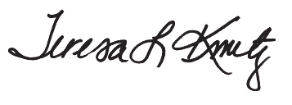 Teresa L Kmetz